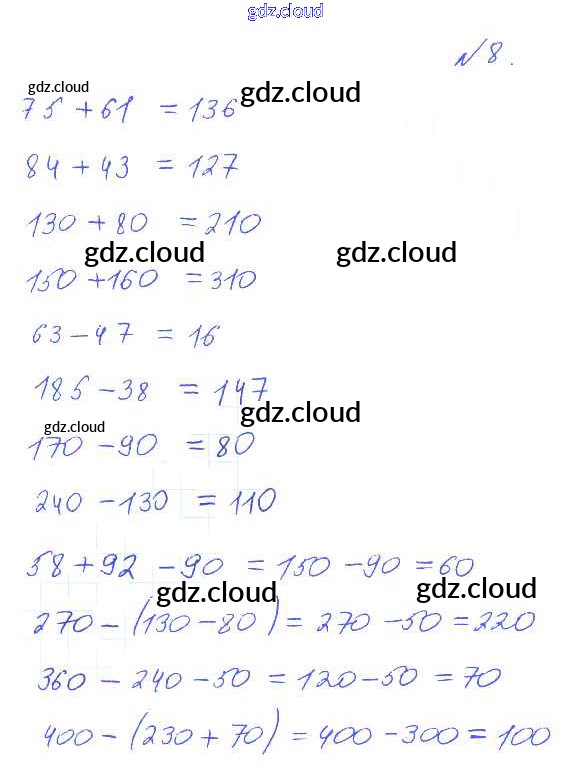 gdz.cloud
№ 8.
gdz.cloud
gdz.cloud
75 + 61 = 136
84 + 43 = 127
130 + 80 = 210
gdz.cloud gdz.cloud
150 + 160 = 310
63 - 47 = 16
185 - 38 = 147
gdz.cloud
gdz.cloud
170 - 90 = 80
240 - 130 = 110
58 + 92 - 90 = 150 - 90 = 60
gdz.cloud gdz.cloud
270 - (130 - 80) = 270 - 50 = 220
360 - 240 - 50 = 120 - 50 = 70
400 - (230 + 70) = 400 - 300 = 100